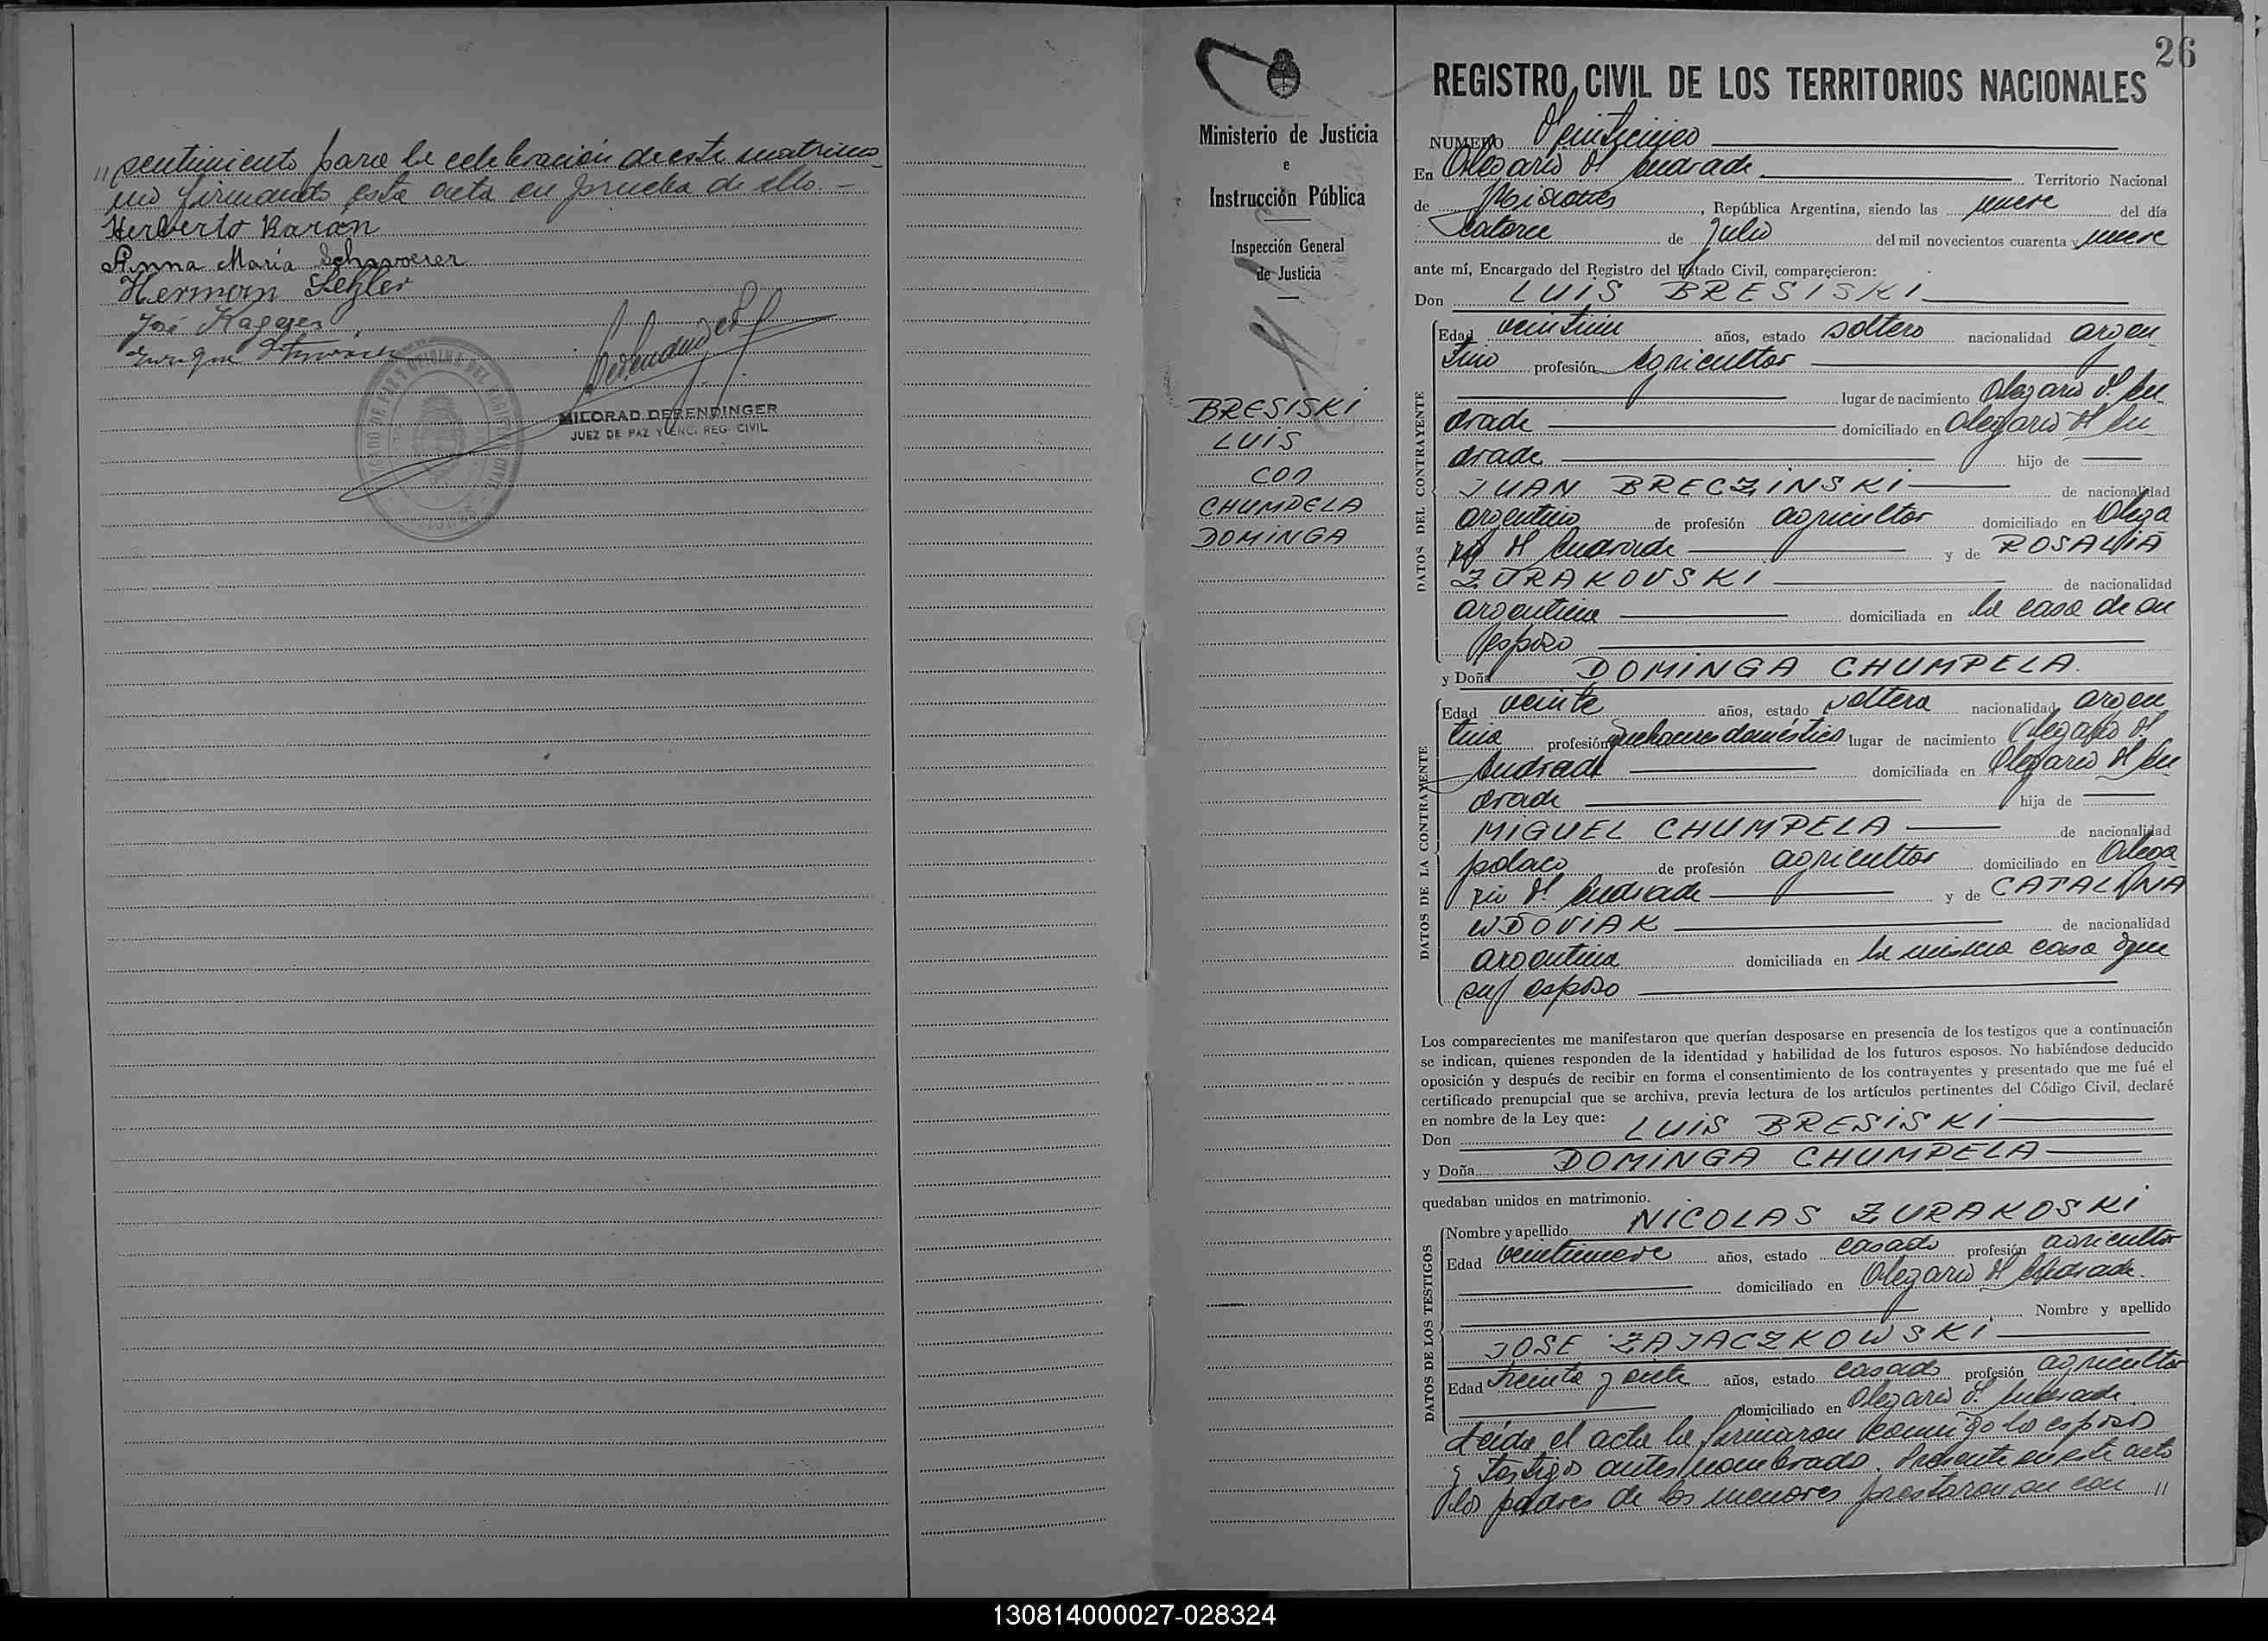 " sentimiento para la celebración de este matrimo-
nio firmando esta acta en prueba de ello. -
Herberto Baron
Anna Maria Schwoerer
Herman
José
Enrique
MILORAD DERENDINGER
JUEZ DE PAZ Y ENC. REG. CIVIL
Ministerio de Justicia
e
Instrucción Pública
Inspección General
de Justicia
BRESISKI
LUIS
CON
CHUMPELA
DOMINGA
26
REGISTRO CIVIL DE LOS TERRITORIOS NACIONALES
NUMERO Veinticinco
En Olegario V. Andrade Territorio Nacional
de Misiones, República Argentina, siendo las nueve del día
catorce de Julio del mil novecientos cuarenta y nueve
ante mí, Encargado del Registro del Estado Civil, comparecieron:
Don LUIS BRESISKI
DATOS DEL CONTRAYENTE
Edad veintiun años, estado soltero nacionalidad argen
tino profesión agricultor
lugar de nacimiento Olegario V. An
drade domiciliado en Olegario V. An
drade hijo de
JUAN BRECZINSKI de nacionalidad
argentino de profesión agricultor domiciliado en Olega
rio V. Andrade y de ROSALIA
ZURAKOVSKI de nacionalidad
argentina domiciliada en la casa de su
esposo
y Doña DOMINGA CHUMPELA.
DATOS DE LA CONTRAYENTE
Edad veinte años, estado soltera nacionalidad argen
tina profesión quehaceres domésticos lugar de nacimiento Olegario V.
Andrade domiciliada en Olegario V. An
drade hija de
MIGUEL CHUMPELA de nacionalidad
polaco de profesión agricultor domiciliado en Olega
rio V. Andrade y de CATALINA
WDOVIAK de nacionalidad
argentina domiciliada en la misma casa que
su esposo
Los comparecientes me manifestaron que querían desposarse en presencia de los testigos que a continuación
se indican, quienes responden de la identidad y habilidad de los futuros esposos. No habiéndose deducido
oposición y después de recibir en forma el consentimiento de los contrayentes y presentado que me fué el
certificado prenupcial que se archiva, previa lectura de los artículos pertinentes del Código Civil, declaré
en nombre de la Ley que:
Don LUIS BRESISKI
y Doña DOMINGA CHUMPELA
quedaban unidos en matrimonio.
DATOS DE LOS TESTIGOS
Nombre y apellido NICOLAS ZURAKOSKI
Edad veintinueve años, estado casado profesión agricultor
domiciliado en Olegario V. Andrade.
Nombre y apellido
JOSE ZAJACZKOWSKI
Edad treinta y siete años, estado casado profesión agricultor
domiciliado en Olegario V. Andrade
Leida el acta la firmaron conmigo los esposos
y testigos antes nombrado. Presente en este acto
los padres de los menores prestaron su con "
130814000027-028324